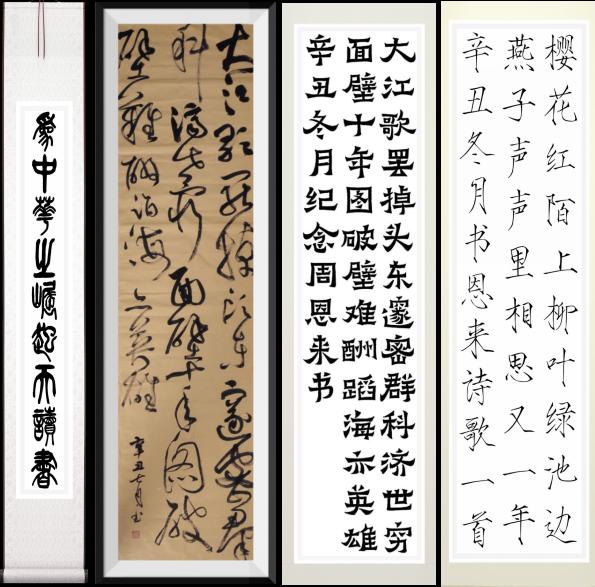 為中華之崛起而讀書
大江歌罷掉头东邃密群
科濟世窮面壁十年图破
壁難酬蹈海亦英雄
辛丑七月书
大江歌罢掉头东邃密群科济世穷
面壁十年图破壁难酬蹈海亦英雄
辛丑冬月纪念周恩来书
樱花红陌上柳叶绿池边
燕子声声里相思又一年
辛丑冬月书恩来诗歌一首